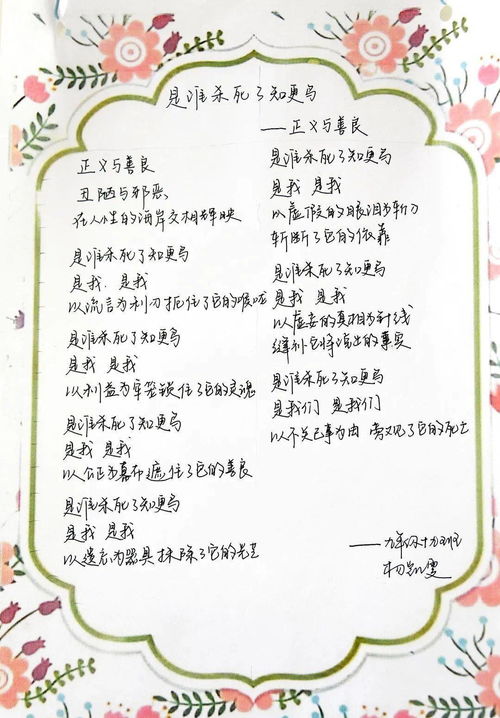 是谁杀死了知更鸟
——正义与善良
正义与善良
丑陋与邪恶
在人性的两岸交相辉映
是谁杀死了知更鸟
是我 是我
以流言为利刃扼住了它的喉咙
是谁杀死了知更鸟
是我 是我
以利益为牢笼锁住了它的灵魂
是谁杀死了知更鸟
是我 是我
以公正为幕布遮住了它的善良
是谁杀死了知更鸟
是我 是我
以遗忘为器具抹除了它的光芒
是谁杀死了知更鸟
是我 是我
以虚假的眼泪为斩刀
斩断了它的依靠
是谁杀死了知更鸟
是我 是我
以虚妄的真相为针线
缝补它将说出的事实
是谁杀死了知更鸟
是我们 是我们
以不关己事为由 旁观了它的死亡
——九年级十九班
杨凯雯